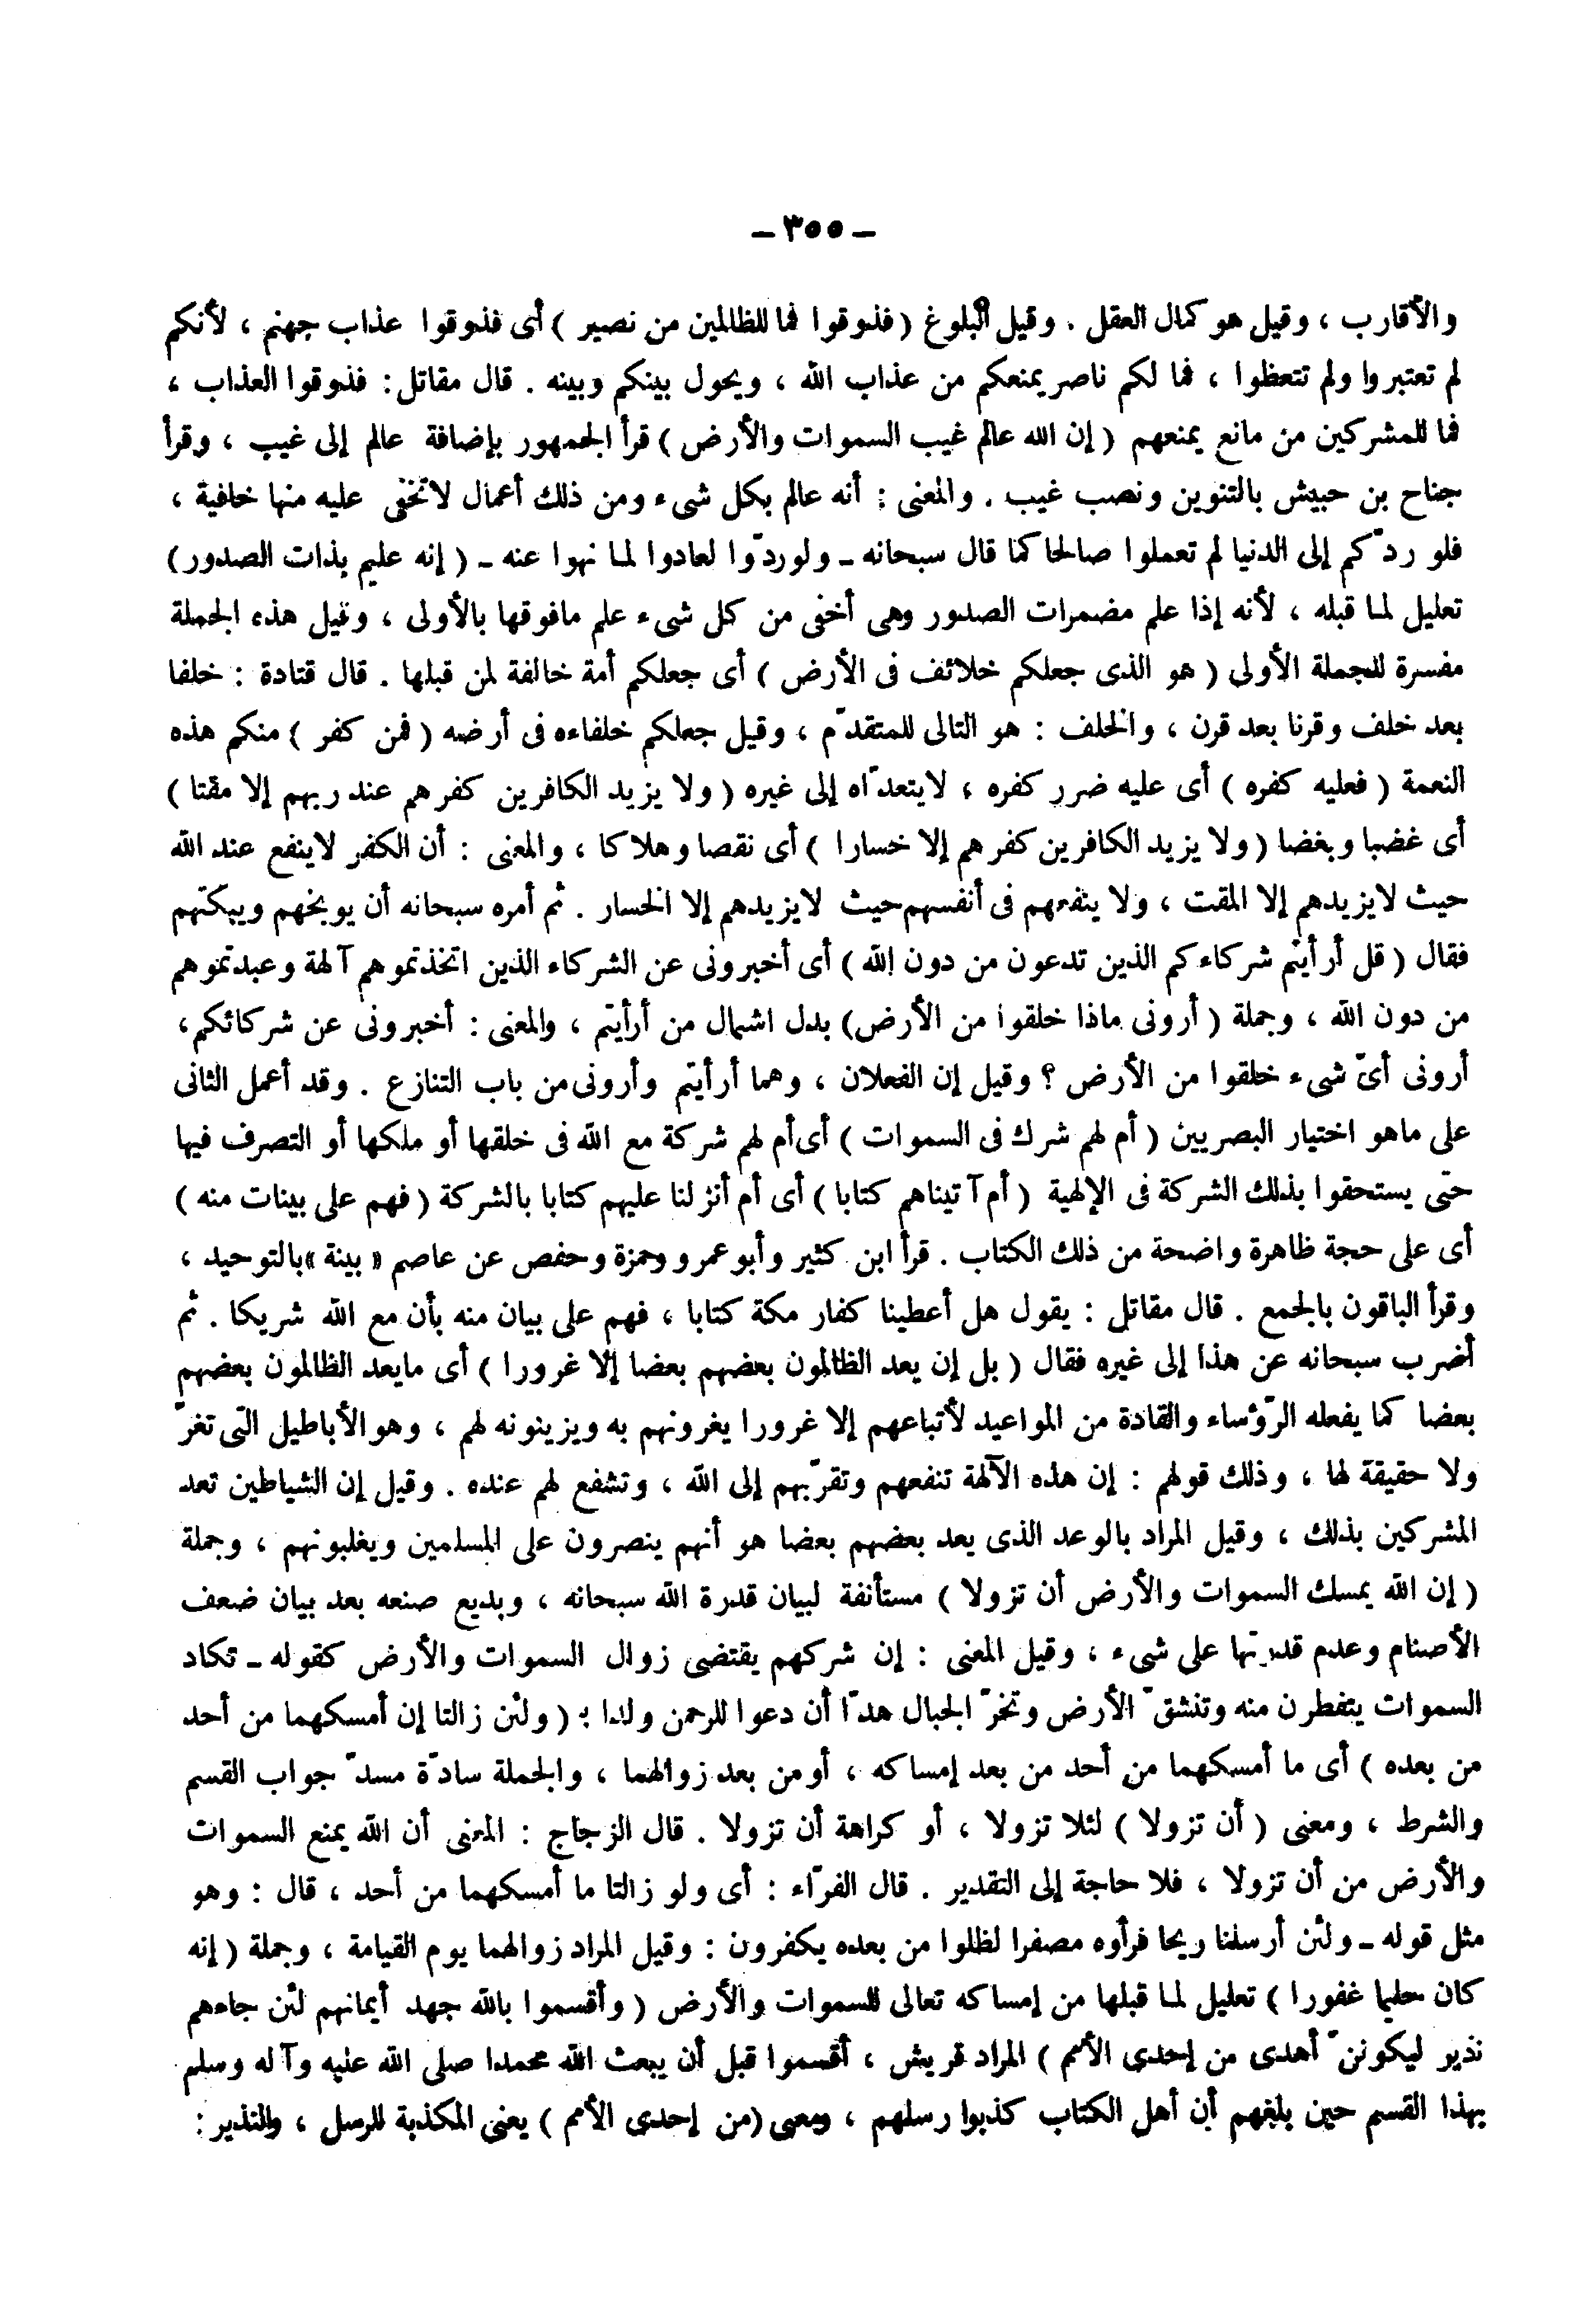 – ٣٥٥ –
والأقارب ، وقيل هو كمال العقل . وقيل البلوغ ( فذوقوا فما للظالمين من نصير ) أى فذوقوا عذاب جهنم ، لأنكم
لم تعتبروا ولم تتعظوا ، فما لكم ناصر يمنعكم من عذاب الله ، ويحول بينكم وبينه . قال مقاتل : فذوقوا العذاب ،
فما للمشركين من مانع يمنعهم ( إن الله عالم غيب السموات والأرض ) قرأ الجمهور بإضافة عالم إلى غيب ، وقرأ
جناح بن حبيش بالتنوين ونصب غيب . والمعنى : أنه عالم بكل شىء ومن ذلك أعمال لاتخفى عليه منها خافية ،
فلو ردّكم إلى الدنيا لم تعملوا صالحا كما قال سبحانه ــ ولو ردّوا لعادوا لما نهوا عنه ــ ( إنه عليم بذات الصدور )
تعليل لما قبله ، لأنه إذا علم مضمرات الصدور وهى أخفى من كل شىء علم مافوقها بالأولى ، وقيل هذه الجملة
مفسرة للجملة الأولى ( هو الذى جعلكم خلائف فى الأرض ) أى جعلكم أمة خالفة لمن قبلها . قال قتادة : خلفا
بعد خلف وقرنا بعد قرن ، والخلف : هو التالى للمتقدّم ، وقيل جعلكم خلفاءه فى أرضه ( فمن كفر ) منكم هذه
النعمة ( فعليه كفره ) أى عليه ضرر كفره ، لايتعدّاه إلى غيره ( ولا يزيد الكافرين كفرهم عند ربهم إلا مقتا )
أى غضبا وبغضا ( ولا يزيد الكافرين كفرهم إلا خسارا ) أى نقصا وهلاكا ، والمعنى : أن الكفر لاينفع عند الله
حيث لايزيدهم إلا المقت ، ولا ينفعهم فى أنفسهم حيث لايزيدهم إلا الخسار . ثم أمره سبحانه أن يوبخهم ويبكتهم
فقال ( قل أرأيتم شركاءكم الذين تدعون من دون الله ) أى أخبرونى عن الشركاء الذين اتخذتموهم آلهة وعبدتموهم
من دون الله ، وجملة ( أرونى ماذا خلقوا من الأرض ) بدل اشتمال من أرأيتم ، والمعنى : أخبرونى عن شركائكم ،
أرونى أىّ شىء خلقوا من الأرض ؟ وقيل إن الفعلان ، وهما أرأيتم وأرونى من باب التنازع . وقد أعمل الثانى
على ماهو اختيار البصريين ( أم لهم شرك فى السموات ) أى أم لهم شركة مع الله فى خلقها أو ملكها أو التصرف فيها
حتى يستحقوا بذلك الشركة فى الإلهية ( أم آتيناهم كتابا ) أى أم أنزلنا عليهم كتابا بالشركة ( فهم على بينات منه )
أى على حجة ظاهرة واضحة من ذلك الكتاب . قرأ ابن كثير وأبو عمرو وحمزة وحفص عن عاصم « بينة » بالتوحيد ،
وقرأ الباقون بالجمع . قال مقاتل : يقول هل أعطينا كفار مكة كتابا ، فهم على بيان منه بأن مع الله شريكا . ثم
أضرب سبحانه عن هذا إلى غيره فقال ( بل إن يعد الظالمون بعضهم بعضا إلا غرورا ) أى مايعد الظالمون بعضهم
بعضا كما يفعله الرّؤساء والقادة من المواعيد لأتباعهم إلا غرورا يغرونهم به ويزينونه لهم ، وهو الأباطيل التى تغرّ
ولا حقيقة لها ، وذلك قولهم : إن هذه الآلهة تنفعهم وتقرّبهم إلى الله ، وتشفع لهم عنده . وقيل إن الشياطين تعد
المشركين بذلك ، وقيل المراد بالوعد الذى يعد بعضهم بعضا هو أنهم ينصرون على المسلمين ويغلبونهم ، وجملة
( إن الله يمسك السموات والأرض أن تزولا ) مستأنفة لبيان قدرة الله سبحانه ، وبديع صنعه بعد بيان ضعف
الأصنام وعدم قدرتها على شىء ، وقيل المعنى : إن شركهم يقتضى زوال السموات والأرض كقوله ــ تكاد
السموات يتفطرن منه وتنشقّ الأرض وتخرّ الجبال هدّا أن دعوا للرحمن ولدا : ( ولئن زالتا إن أمسكهما من أحد
من بعده ) أى ما أمسكهما من أحد من بعد إمساكه ، أو من بعد زوالهما ، والجملة سادّة مسدّ جواب القسم
والشرط ، ومعنى ( أن تزولا ) لئلا تزولا ، أو كراهة أن تزولا . قال الزجاج : المعنى أن الله يمنع السموات
والأرض من أن تزولا ، فلا حاجة إلى التقدير . قال الفرّاء : أى ولو زالتا ما أمسكهما من أحد ، قال : وهو
مثل قوله ــ ولئن أرسلنا ريحا فرأوه مصفرا لظلوا من بعده يكفرون : وقيل المراد زوالهما يوم القيامة ، وجملة ( إنه
كان حليما غفورا ) تعليل لما قبلها من إمساكه تعالى للسموات والأرض ( وأقسموا بالله جهد أيمانهم لئن جاءهم
نذير ليكوننّ أهدى من إحدى الأمم ) المراد قريش ، أقسموا قبل أن يبعث الله محمدا صلى الله عليه وآله وسلم
بهذا القسم حين بلغهم أن أهل الكتاب كذبوا رسلهم ، ومعنى ( من إحدى الأمم ) يعنى المكذبة للرسل ، والنذير :